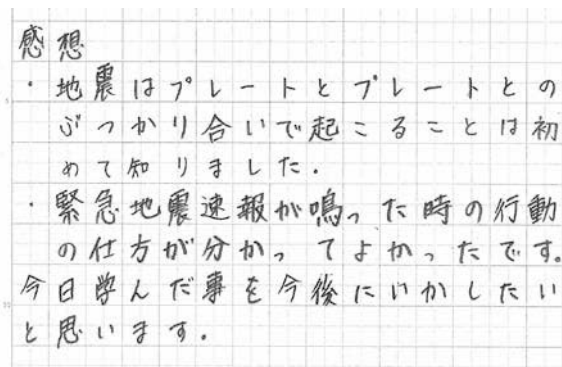 感想
・地震はプレートとプレートとの
ぶつかり合いで起こることは初
めて知りました.
・緊急地震速報が鳴った時の行動
の仕方が分かってよかったです。
今日学んだ事を今後にいかしたい
と思います.